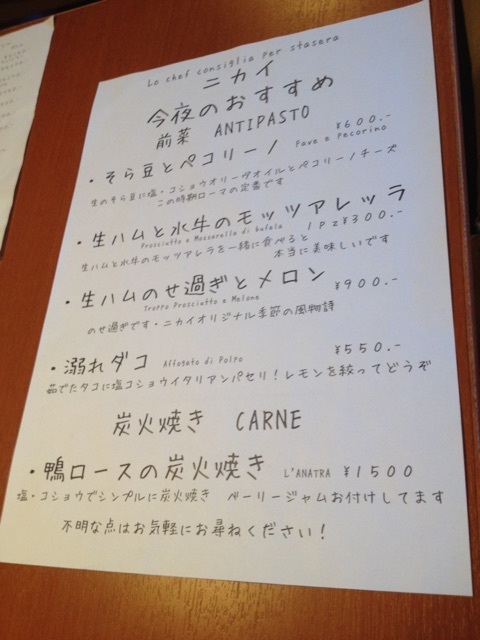 Lo chef consiglia per stasera
ニカイ
今夜のおすすめ
前菜 ANTIPASTO
・そら豆とペコリーノ ¥600.-
Fave e Pecorino
生のそら豆に塩・コショウオリーヴオイルとペコリーノチーズ
この時期ローマの定番です
・生ハムと水牛のモッツアレッラ
Prosciutto e Mozzarella di bufala 1Pz¥300.-
生ハムと水牛のモッツアレラを一緒に食べると
本当に美味しいです
・生ハムのせ過ぎとメロン ¥900.-
Troppo Prosciutto e Melone
のせ過ぎです・ニカイオリジナル季節の風物詩
・溺れダコ Affogato di Polpo ¥550.-
茹でたタコに塩コショウイタリアンパセリ！レモンを絞ってどうぞ
炭火焼き CARNE
・鴨ロースの炭火焼き L'ANATRA ¥1500
塩・コショウでシンプルに炭火焼き ベーリージャムお付けしてます
不明な点はお気軽にお尋ねください！